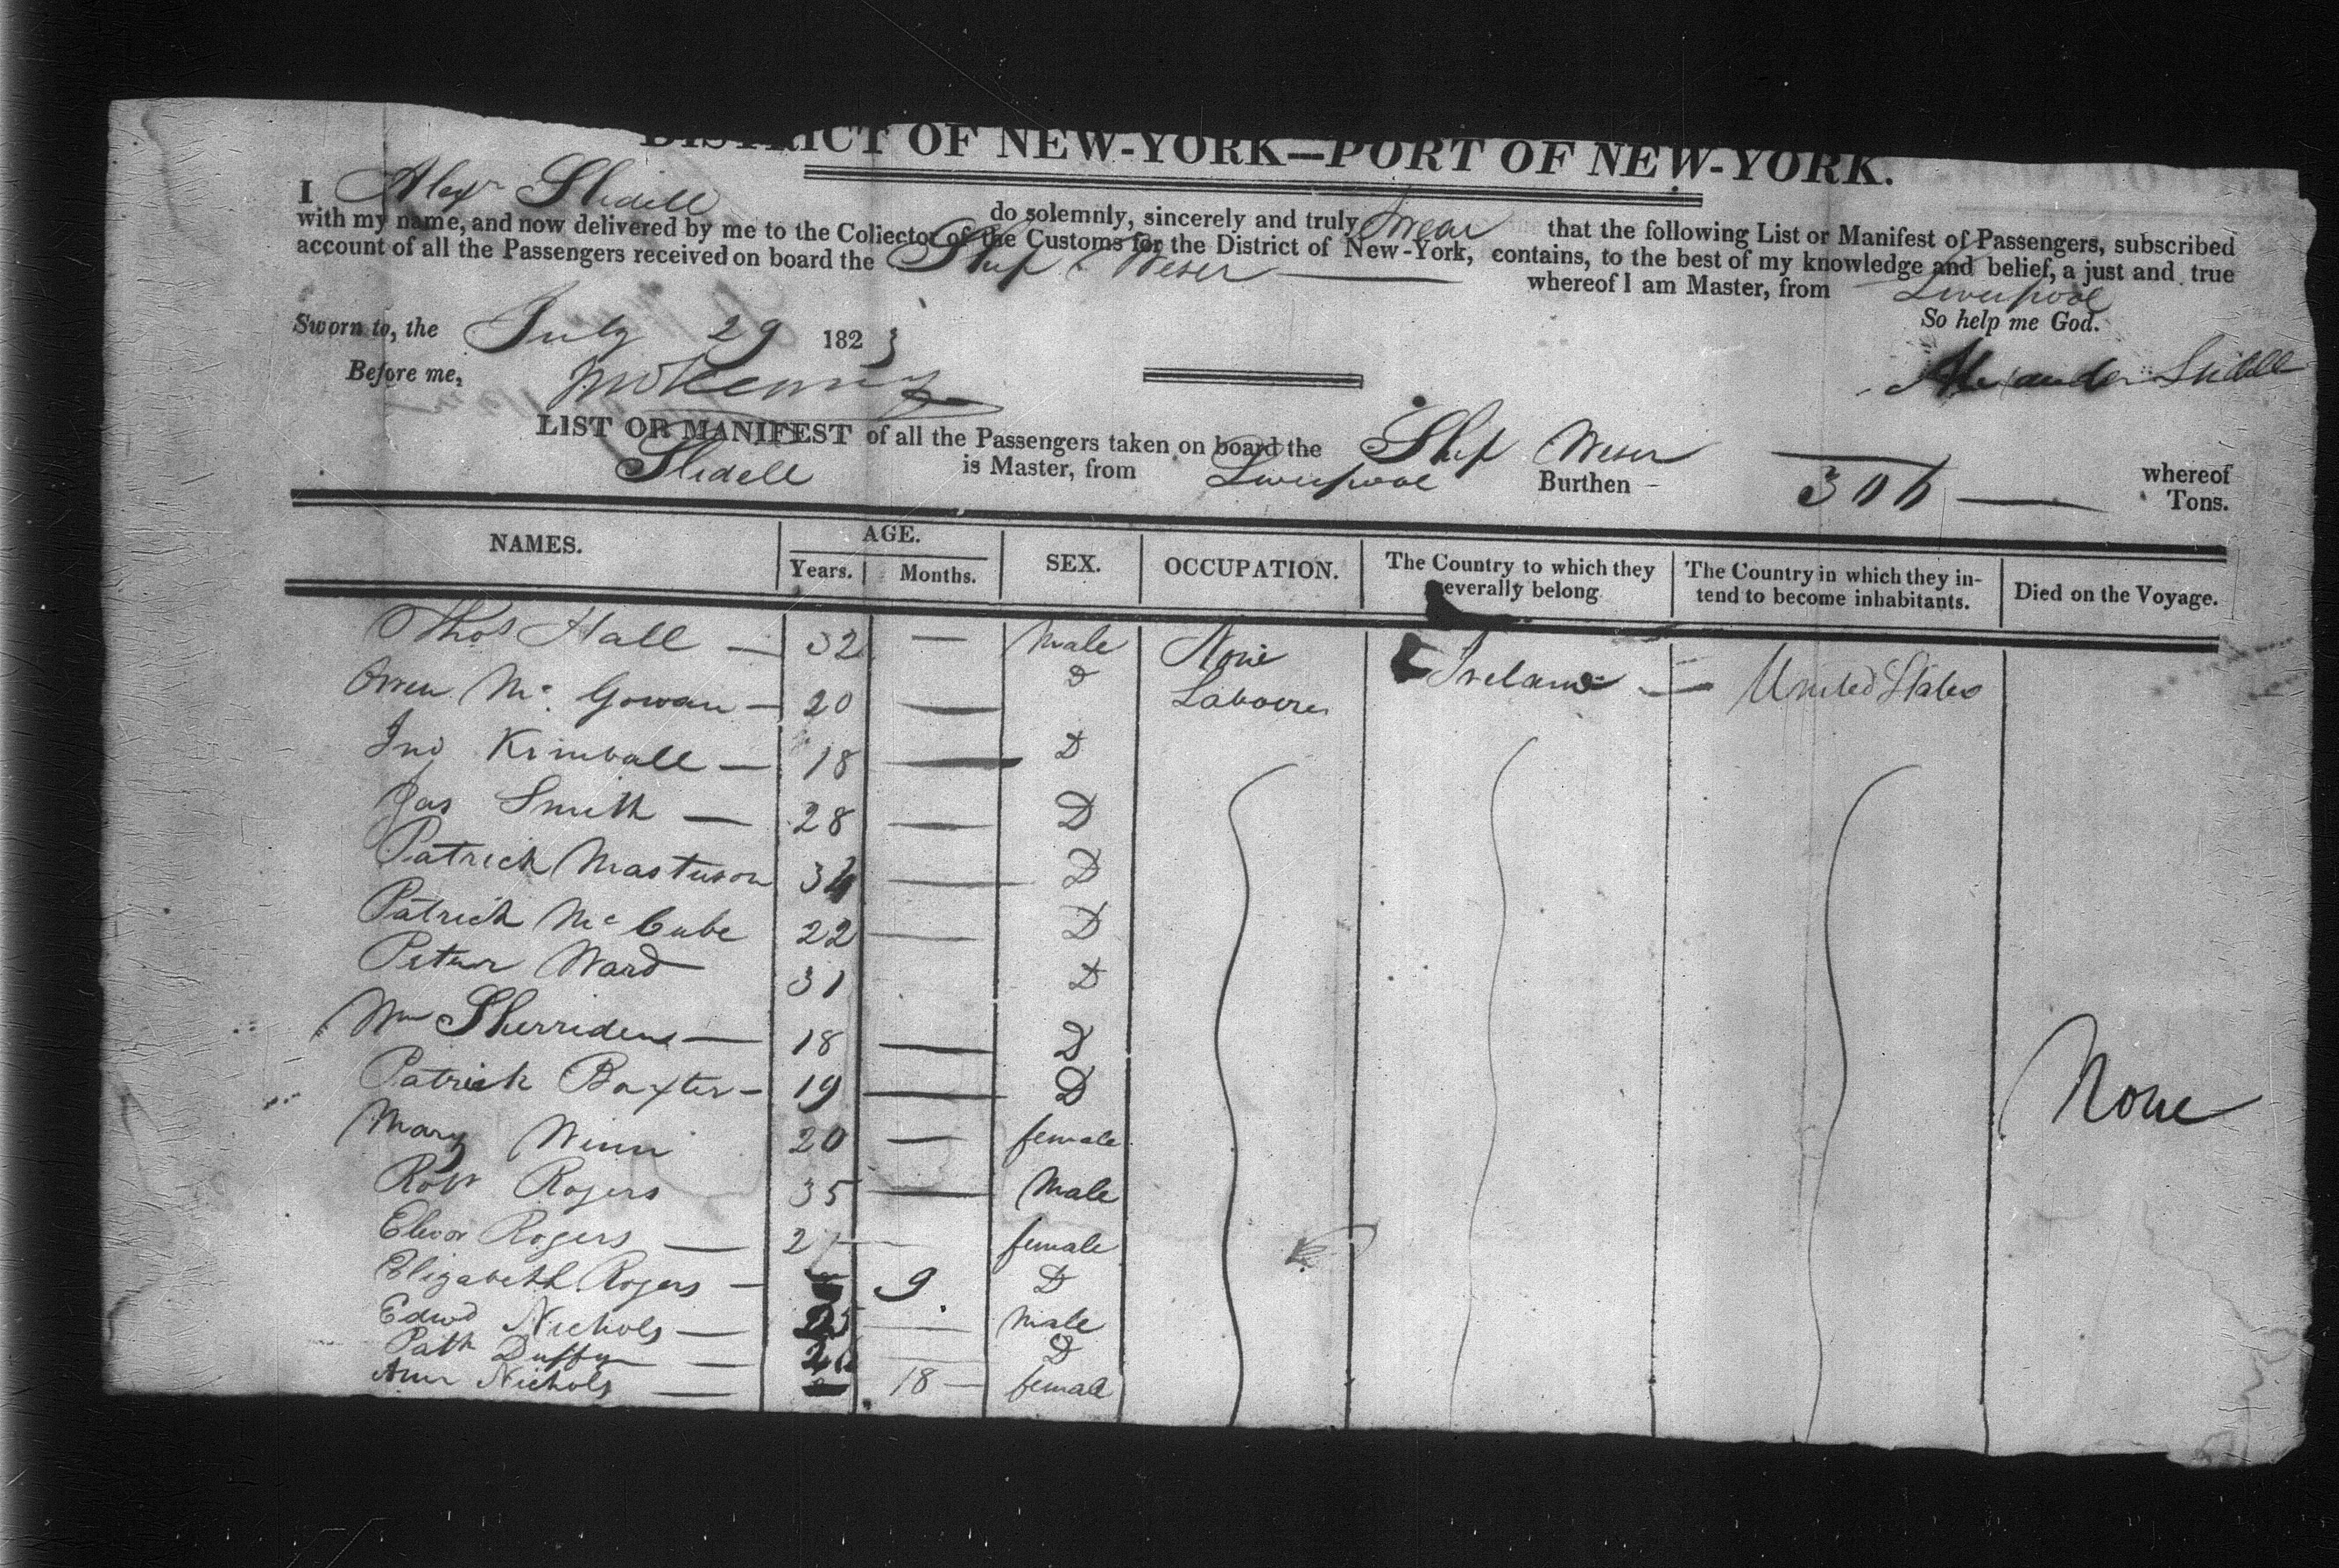 DISTRICT OF NEW-YORK—PORT OF NEW-YORK.
I Alexr Slidell do solemnly, sincerely and truly Swear that the following List or Manifest of Passengers, subscribed
with my name, and now delivered by me to the Collector of the Customs for the District of New-York, contains, to the best of my knowledge and belief, a just and true
account of all the Passengers received on board the Ship Weser whereof I am Master, from Liverpool
So help me God.
Sworn to, the July 29 1823
Before me,
Alexander Slidell
LIST OR MANIFEST of all the Passengers taken on board the Ship Weser whereof
Slidell is Master, from Liverpool Burthen Tons.
NAMES. AGE. SEX. OCCUPATION. The Country to which they severally belong The Country in which they intend to become inhabitants. Died on the Voyage.
Years. Months.
Thos Hall — 32 — Male None Ireland — United States
Owen Mc Gowan — 20 — D Labourer
Jno Kimball — 18 — D
Jas Smith — 28 — D
Patrick Masterson 34 — D
Patrick Mc Cube 22 — D
Peter Ward 31 D
Wm Sherridens — 18 — D
Patrick Baxter — 19 — D
Mary Winn 20 — female None
Robt Rogers 35 — Male
Elenor Rogers — 27 — female
Elizabeth Rogers — 9 D
Edwd Nichols — 25 — male
Patk Duffy — — D
Ann Nichols — 18 — female